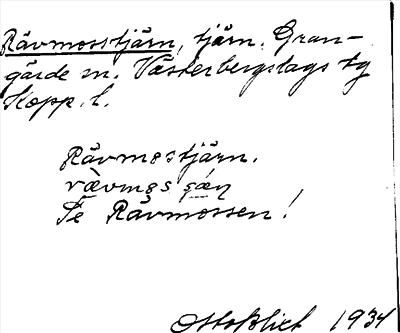 Rävmosstjärn, tjärn. Gran-
gärde sn. Västerbergslags tg
Kopp. l.
Rävmostjärn.
Se Rävmossen!
Otto Blixt 1934